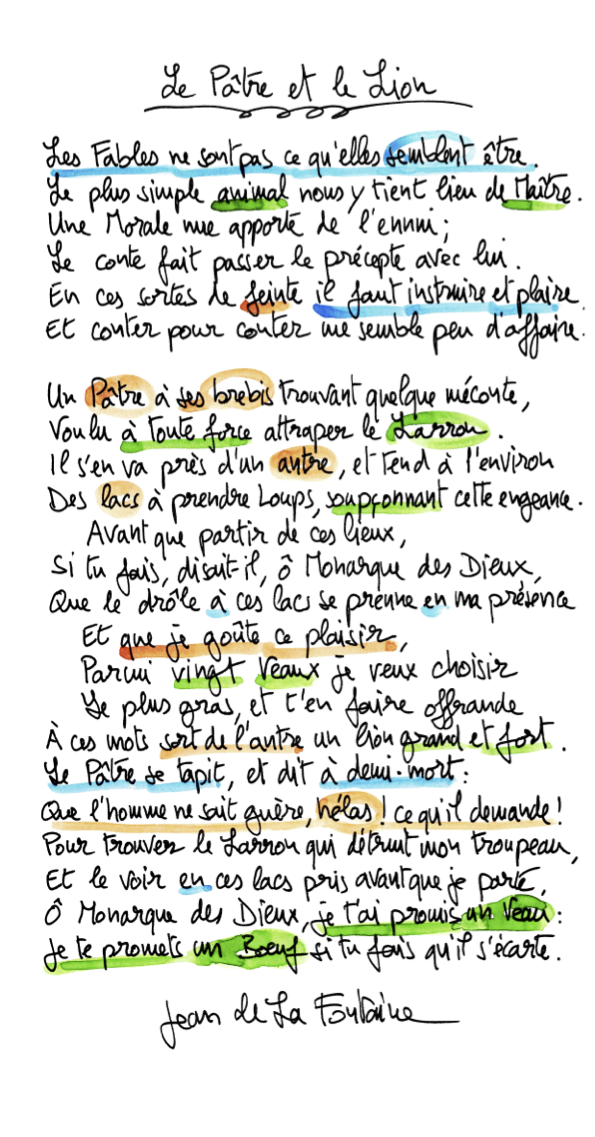 Le Pâtre et le Lion
Les Fables ne sont pas ce qu'elles semblent être.
Le plus simple animal nous y tient lieu de Maître.
Une Morale nue apporte de l'ennui ;
Le conte fait passer le précepte avec lui.
En ces sortes de feinte il faut instruire et plaire
Et conter pour conter me semble peu d'affaire.
Un Pâtre à ses brebis trouvant quelque méconte,
Voulu à toute force attraper le Larron.
Il s'en va près d'un antre, et tend à l'environ
Des lacs à prendre Loups, soupçonnant cette engeance.
Avant que partir de ces lieux,
Si tu fais, disait-il, ô Monarque des Dieux,
Que le drôle à ces lacs se prenne en ma présence
Et que je goûte ce plaisir,
Parmi vingt Veaux je veux choisir
Le plus gras, et t'en faire offrande
À ces mots sort de l'antre un lion grand et fort.
Le Pâtre se tapit, et dit à demi-mort :
Que l'homme ne sait guère, hélas ! ce qu'il demande !
Pour trouver le Larron qui détruit mon troupeau,
Et le voir en ces lacs pris avant que je parte,
Ô Monarque des Dieux, je t'ai promis un Veau :
Je te promets un Bœuf si tu fais qu'il s'écarte.
Jean de La Fontaine